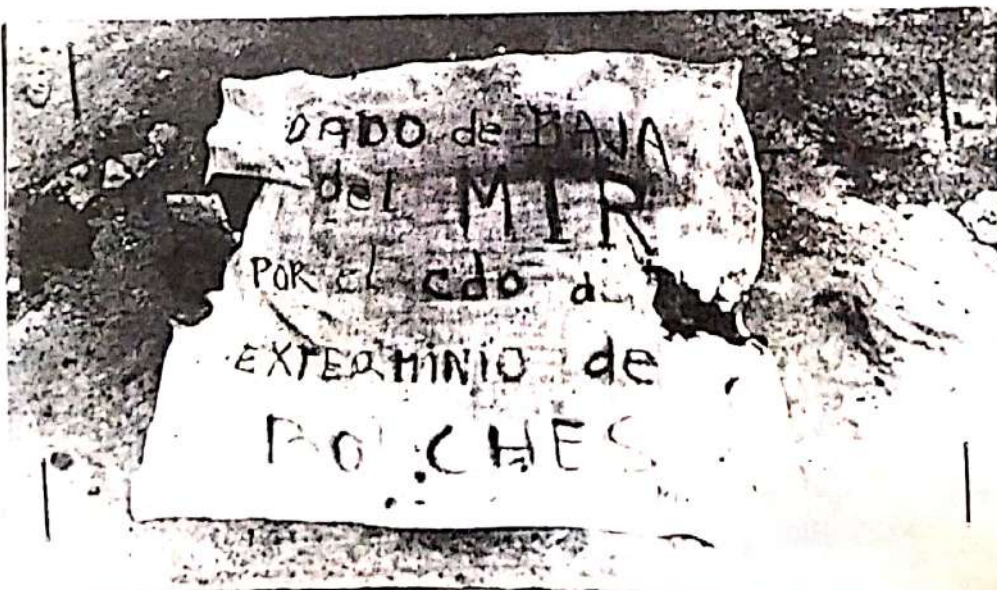 DADO de BAJA
del MIR
POR el cdo
EXTERMINIO de